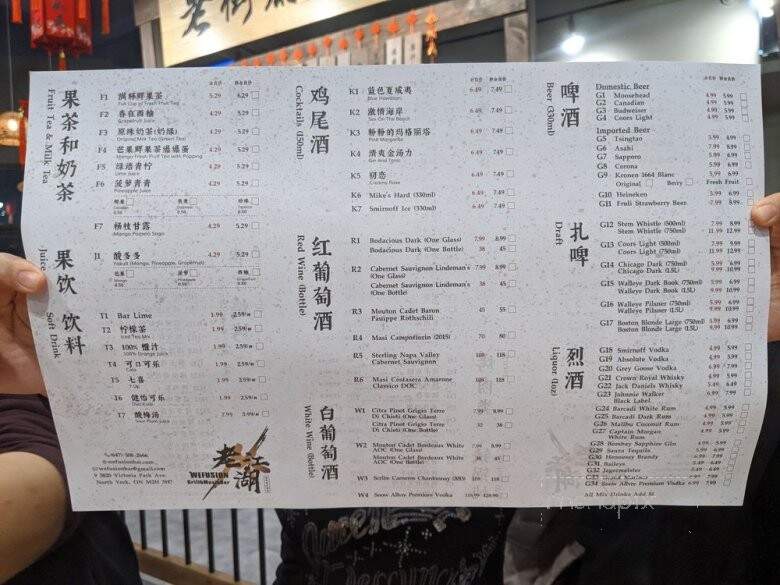 老街
果茶和奶茶
Fruit Tea & Milk Tea
F1 满杯鲜果茶 4.29 5.29
Full Cup of Fresh Fruit Tea
F2 香在西柚 4.29 5.29
Grapefruit Juice
F3 原味奶茶(奶绿) 4.29 5.29
Original Milk Tea (Green Tea)
F4 芒果鲜果茶 4.29 5.29
Mango Fresh Fruit Tea with Popping
F5 绿消青柠 4.29 5.29
Lime Juice
F6 菠萝青青 4.29 5.29
Pineapple Juice
F7 杨枝甘露 4.29 5.29
(Mango Pomelo Sago)
果饮
Juice
J1 酸多多 4.29 5.29
Yakult (Mango, Pineapple, Grapefruit)
饮料
Soft Drink
T1 Bar Lime 1.99 2.59
T2 柠檬茶 1.99 2.59
Iced Tea Mix
T3 100% 橙汁 1.99 2.59
100% Orange Juice
T4 可口可乐 1.99 2.59
Coke
T5 七喜 1.99 2.59
7 UP
T6 健怡可乐 1.99 2.59
T7 酸梅汤 2.99 3.59
Sour Plum Juice
wefusionbar.com
wefusionbar@gmail.com
3820 Victoria Park Ave.
North York, ON M2H 3H7
老江湖
WEFUSION
Grill&MusicBar
鸡尾酒
Cocktails (150ml)
K1 蓝色夏威夷 6.49 7.49
Blue Hawaiian
K2 激情海岸 6.49 7.49
Sex On The Beach
K3 粉粉的玛格丽塔 6.49 7.49
Pink Margarita
K4 清爽金汤力 6.49 7.49
Gin And Tonic
K5 初恋 6.49 7.49
K6 Mike's Hard (330ml) 6.49 7.49
K7 Smirnoff Ice (330ml) 6.49 7.49
红葡萄酒
Red Wine (Bottle)
R1 Bodacious Dark (One Glass) 7.99 8.99
Bodacious Dark (One Bottle) 38 45
R2 Cabernet Sauvignon Lindeman's 7.99 8.99
(One Glass)
Cabernet Sauvignon Lindeman's 38 45
(One Bottle)
R3 Mouton Cadet Baron 45 55
Pauippe Rothschili
R4 Masi Campofiorin (2015) 70 80
R5 Sterling Napa Valley 108 118
Cabernet Sauvignon
R6 Masi Costasera Amarone 108 118
Classico DOC
白葡萄酒
White Wine (Bottle)
W1 Citra Pinot Grigio Terre 7.99 8.99
Di Chioti (One Glass)
Citra Pinot Grigio Terre 32 38
Di Chioti (One Bottle)
W2 Mouton Cadet Bordeaux White 7.99 8.99
AOC (One Glass)
Mouton Cadet Bordeaux White 38 45
AOC (One Bottle)
W3 Strlin Cameros Chardonnay 108 118
W4 Snow Allvo Premium Vodka 118.99 128.99
啤酒
Beer (330ml)
Domestic Beer
G1 Moosehead 4.99 5.99
G2 Canadian 4.99 5.99
G3 Budweiser 4.99 5.99
G4 Coors Light 4.99 5.99
Imported Beer
G5 Tsingtao 5.99 6.99
G6 Asahi 5.99 6.99
G7 Sapporo 5.99 6.99
G8 Corona 5.99 6.99
G9 Kronen 1664 Blanc 5.99 6.99
Original Berry Fresh Fruit
G10 Heineken 5.99 6.99
G11 Fruli Strawberry Beer 7.99 8.99
扎啤
Draft
G12 Stem Whistle (500ml) 7.99 8.99
Stem Whistle (750ml) 11.99 12.99
G13 Coors Light (500ml) 5.99 6.99
Coors Light (750ml)
G14 Chicago Dark (750ml) 5.99 6.99
Chicago Dark (1.5L) 9.99 10.99
G15 Walleye Dark Book (750ml) 5.99 6.99
Walleye Dark Book (1.5L) 9.99 10.99
G16 Walleye Pilsner (750ml) 5.99 6.99
Walleye Pilsner (1.5L) 9.99 10.99
G17 Boston Blonde Large (750ml) 5.99 6.99
Boston Blonde Large (1.5L) 9.99 10.99
烈酒
Liquor (1oz)
G18 Smirnoff Vodka 4.99 5.99
G19 Absolute Vodka 4.99 5.99
G20 Grey Goose Vodka 4.99 5.99
G21 Crown Royal Whisky 4.99 5.99
G22 Jack Daniels Whisky 5.49 6.49
G23 Johnnie Walker 5.99 6.99
Black Label
G24 Barcadi White Rum 4.99 5.99
G25 Barcadi Dark Rum 4.99 5.99
G26 Malibu Coconut Rum 4.99 5.99
G27 Captain Morgan 4.99 5.99
White Rum
G28 Bombay Sapphire Gin 4.99 5.99
G29 Sauza Tequila 5.49 6.49
G30 Hennessy Brandy
G31 Baileys 5.49 6.49
G32 Jagermeister
G34 Snow Allvo Premium Vodka 6.99 7.99
All Mix Drinks Add $1